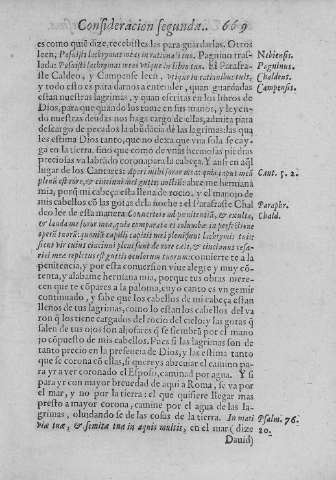 Consideracion segunda. 669
es como quiē dize, recebistes las para guardarlas. Otros
leen, Posuisti lachrymas meas in rationa tuo. Pagnino tras-
lada: Posuisti lachrymas meas vtique in libro tuo. El Parafras-
te Caldeo, y Campense leen, vtique in rationibus tuis,
y todo esto es para darnos a entender, quan guardadas
estan nuestras lagrimas, y quan escritas en los libros de
Dios, para que quando los tome en sus manos, y leyen-
do nuestras deudas nos haga cargo de ellas, admita para
descargo de pecados la abūdācia de las lagrimas: las qua
les estima Dios tanto, que no dexa que vna sola se cay-
ga en la tierra, sino que como de vnas hermosas piedras
preciosas va labrādo corona para la cabeça. Y assi en aq̄l
lugar de los Cantares: Aperi mihi soror mea: quia caput meū
plenū est rore, & cincinni mei guttis noctium: abre me hermana
mia, porq̄ mi cabeça esta llena de rocio, y el manojo de
mis cabellos cō las gotas de la noche: el Parafraste Chal
deo lee de esta manera Conuertere ad pœnitentiā, & exulta,
& lauda me soror mea, quæ comparata es columbæ in perfectione
operū tuorū: quoniā capilli capitis mei pleni sunt lachrymis tuis
sicut vir cuius cincinni pleni sunt de rore cæli, & cincinnus cesa-
riei meæ repletus est guttis oculorum tuorum: conuierte te a la
penitencia, y por esta conuersion viue alegre y muy cō-
tenta, y alabame hermana mia, porque tus obras mere-
cen que te cōpares a la paloma, cuyo canto es vn gemir
continuado, y sabe que los cabellos de mi cabeça estan
llenos de tus lagrimas, como lo estan los cabellos del va
ron q̄ los tiene cargados del rocio del cielo: y las gotas q̄
salen de tus ojos son aljofares q̄ se siembrā por el mano
jo cōpuesto de mis cabellos. Pues si las lagrimas son de
tanto precio en la presencia de Dios, y las estima tanto
que se corona cō ellas, si quereys abreuiar el camino pa-
ra yr a ver coronado el Esposo, caminad por agua. Y si
para yr con mayor breuedad de aqui a Roma, se va por
el mar, y no por la tierra: el que quisiere llegar mas
presto a mayor corona, camine por el agua de las la-
grimas, oluidando se de las cosas de la tierra. In mari
via tua, & semita tua in aquis multis, en el mar (dize
Dauid)
Nebiensis.
Pagninus.
Chaldeus.
Campensis.
Cant. 5. 2.
Paraphr.
Chald.
Psalm. 76.
20.